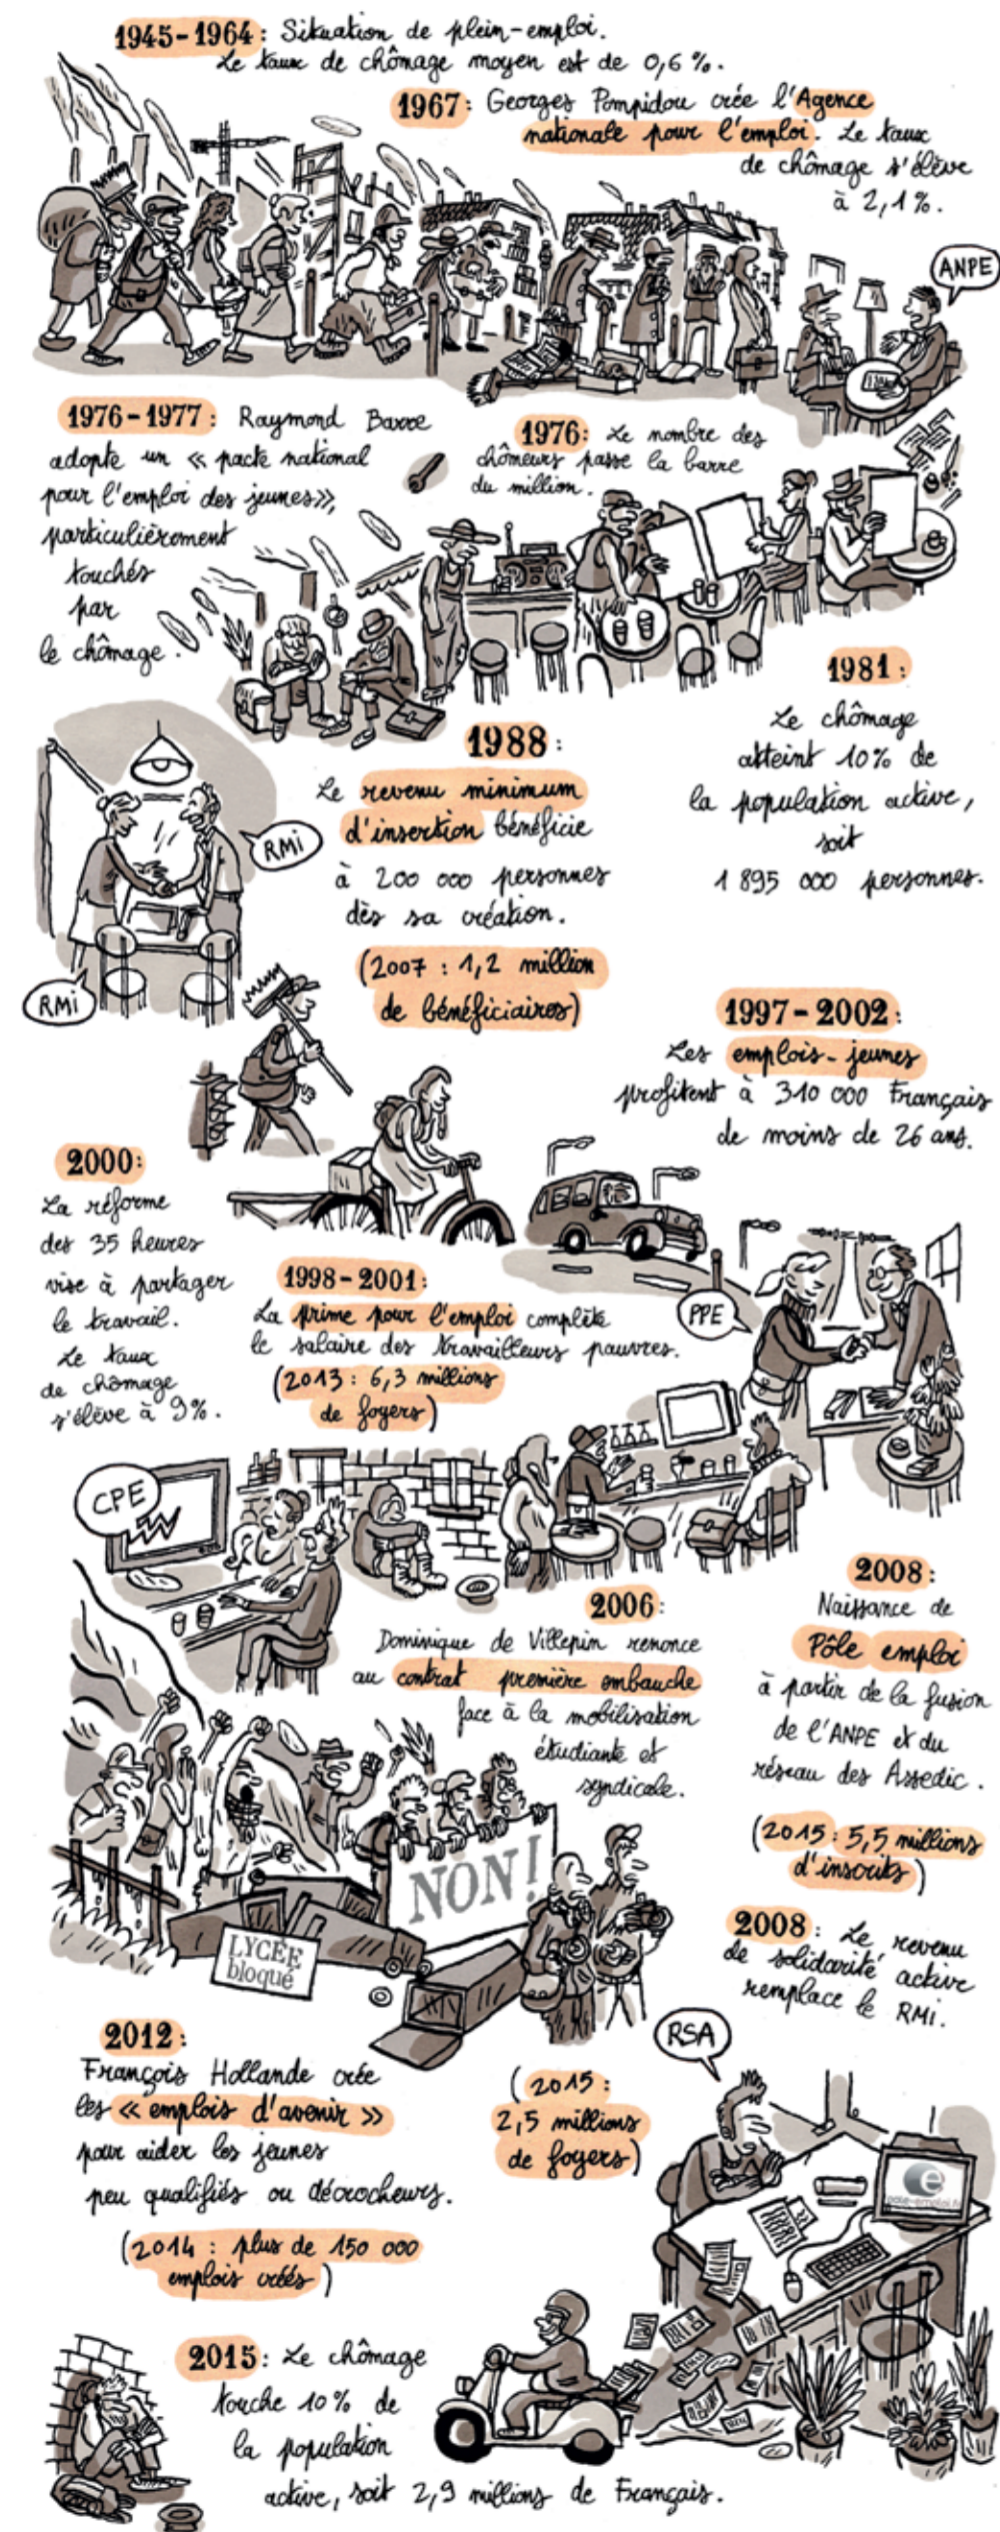 1945-1964: Situation de plein-emploi.
Le taux de chômage moyen est de 0,6%.
1967: Georges Pompidou crée l'Agence
nationale pour l'emploi. Le taux
de chômage s'élève
à 2,1%.
ANPE
1976-1977: Raymond Barre
adopte un « pacte national
pour l'emploi des jeunes»,
particulièrement
touchés
par
le chômage.
1976: Le nombre des
chômeurs passe la barre
du million.
1981:
Le chômage
atteint 10% de
la population active,
soit
1 895 000 personnes.
1988:
Le revenu minimum
d'insertion bénéficie
à 200 000 personnes
dès sa création.
(2007 : 1,2 million
de bénéficiaires)
RMi
RMi
1997-2002:
Les emplois-jeunes
profitent à 310 000 Français
de moins de 26 ans.
2000:
La réforme
des 35 heures
vise à partager
le travail.
Le taux
de chômage
s'élève à 9%.
1998-2001:
La prime pour l'emploi complète
le salaire des travailleurs pauvres.
(2013 : 6,3 millions
de foyers)
PPE
CPE
2006:
Dominique de Villepin renonce
au contrat première embauche
face à la mobilisation
étudiante et
syndicale.
2008:
Naissance de
Pôle emploi
à partir de la fusion
de l'ANPE et du
réseau des Assedic.
(2015 : 5,5 millions
d'inscrits)
NON!
LYCÉE
bloqué
2008: Le revenu
de solidarité active
remplace le RMi.
RSA
(2015:
2,5 millions
de foyers)
2012:
François Hollande crée
les « emplois d'avenir »
pour aider les jeunes
peu qualifiés ou décrocheurs.
(2014 : plus de 150 000
emplois créés)
e
pole-emploi.fr
2015: Le chômage
touche 10% de
la population
active, soit 2,9 millions de Français.